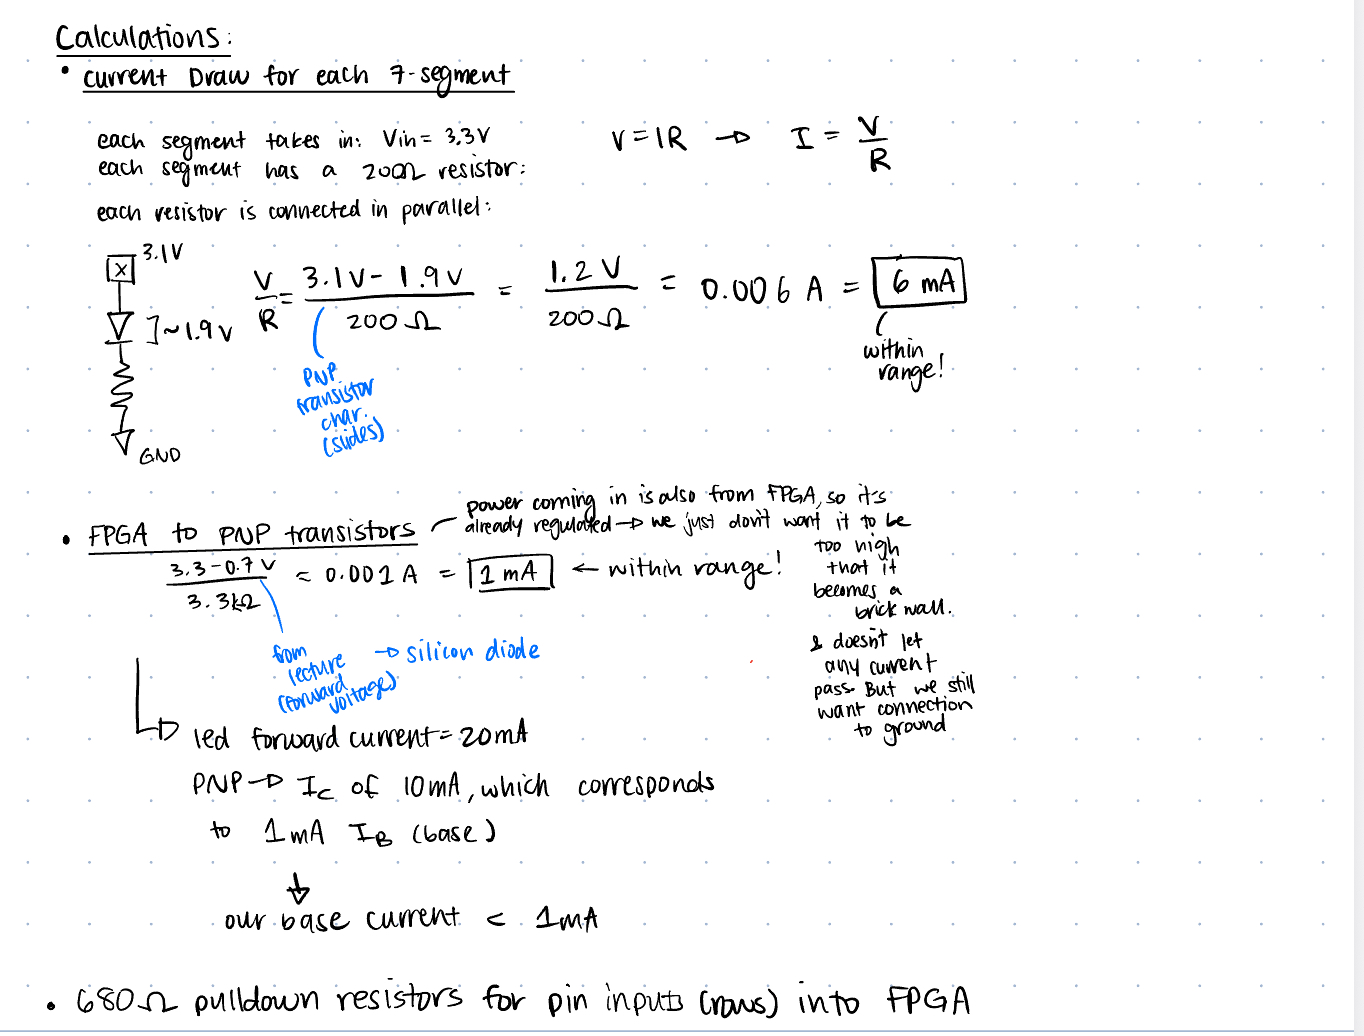 Calculations:
• current Draw for each 7-segment
each segment takes in: Vin = 3.3V
each segment has a 200Ω resistor:
each resistor is connected in parallel:
V=IR → I = V/R
3.1V
X
]~1.9V
GND
V/R = 3.1V - 1.9V / 200Ω = 1.2V / 200Ω = 0.006 A = 6 mA
within
range!
PNP
transistor
char.
(slides)
• FPGA to PNP transistors
power coming in is also from FPGA, so it's
already regulated → we just don't want it to be
too high
that it
becomes a
brick wall.
& doesn't let
any current
pass. But we still
want connection
to ground
3.3-0.7V / 3.3kΩ = 0.001A = 1 mA ← within range!
from
lecture
(forward
voltage)
→ silicon diode
led forward current = 20mA
PNP → Ic of 10mA, which corresponds
to 1mA IB (base)
our base current < 1mA
• 680Ω pulldown resistors for pin inputs (rows) into FPGA